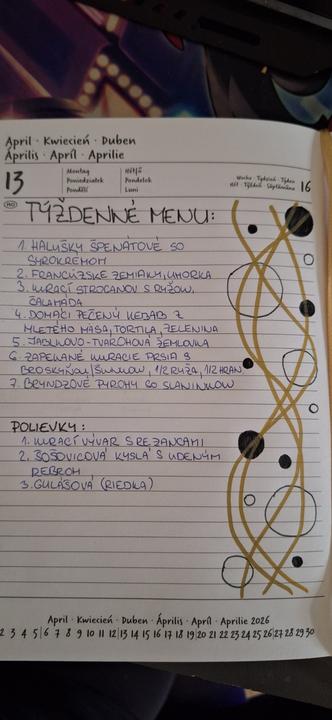 April · Kwiecień · Duben
Április · Apríl · Aprilie
13
Montag
Poniedziałek
Pondělí
Hétfő
Pondelok
Luni
Woche · Tydzień · Týden
Hét · Týždeň · Săptămâna
16
TÝŽDENNÉ MENU:
1. HALUŠKY ŠPENÁTOVÉ SO
SYROKRÉMOM
2. FRANCÚZSKE ZEMIAKY, UHORKA
3. KURACÍ STROGANOV S RYŽOU,
ČALAMÁDA
4. DOMÁCI PEČENÝ KEBAB Z
MLETÉHO MÄSA, TORTILA, ZELENINA
5. JABLKOVO-TVAROHOVÁ ŽEMLOVKA
6. ZAPEKANÉ KURACIE PRSIA S
BROSKYŇOU/ŠUNKOU, 1/2 RYŽA, 1/2 HRAN.
7. BRYNDZOVÉ PIROHY SO SLANINKOU
POLIEVKY:
1. KURACÍ VÝVAR S REZANCAMI
2. ŠOŠOVICOVÁ KYSLÁ S ÚDENÝM
REBROM
3. GULÁŠOVÁ (RIEDKA)
April · Kwiecień · Duben · Április · Apríl · Aprilie 2026
2 3 4 5 | 6 7 8 9 10 11 12 | 13 14 15 16 17 18 19 | 20 21 22 23 24 25 26 | 27 28 29 30